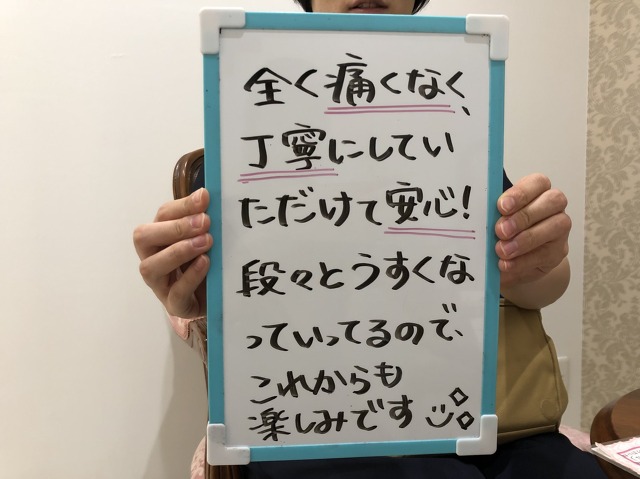 全く痛くなく、
丁寧にしてい
ただけて安心!
段々とうすくな
っていってるので、
これからも
楽しみです